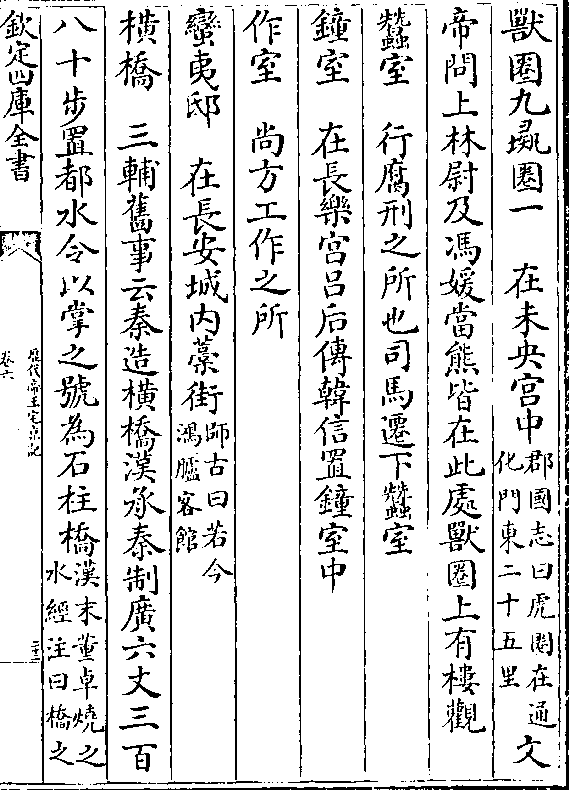 獸圏九彘圏一　在未央宫中郡國志曰虎圏在通化門東二十五里文
帝問上林尉及馮媛當熊皆在此處獸圏上有樓觀
蠶室　行腐刑之所也司馬遷下蠶室
鐘室　在長樂宫吕后傳韓信置鐘室中
作室　尚方工作之所
蠻夷邸　在長安城内藁街師古曰若今鴻臚客館
横橋　三輔舊事云秦造横橋漢承秦制廣六丈三百
八十步置都水令以掌之號為石柱橋漢末董卓燒之水經注曰橋之
欽定四庫全書
歷代帝王宅京記
卷六